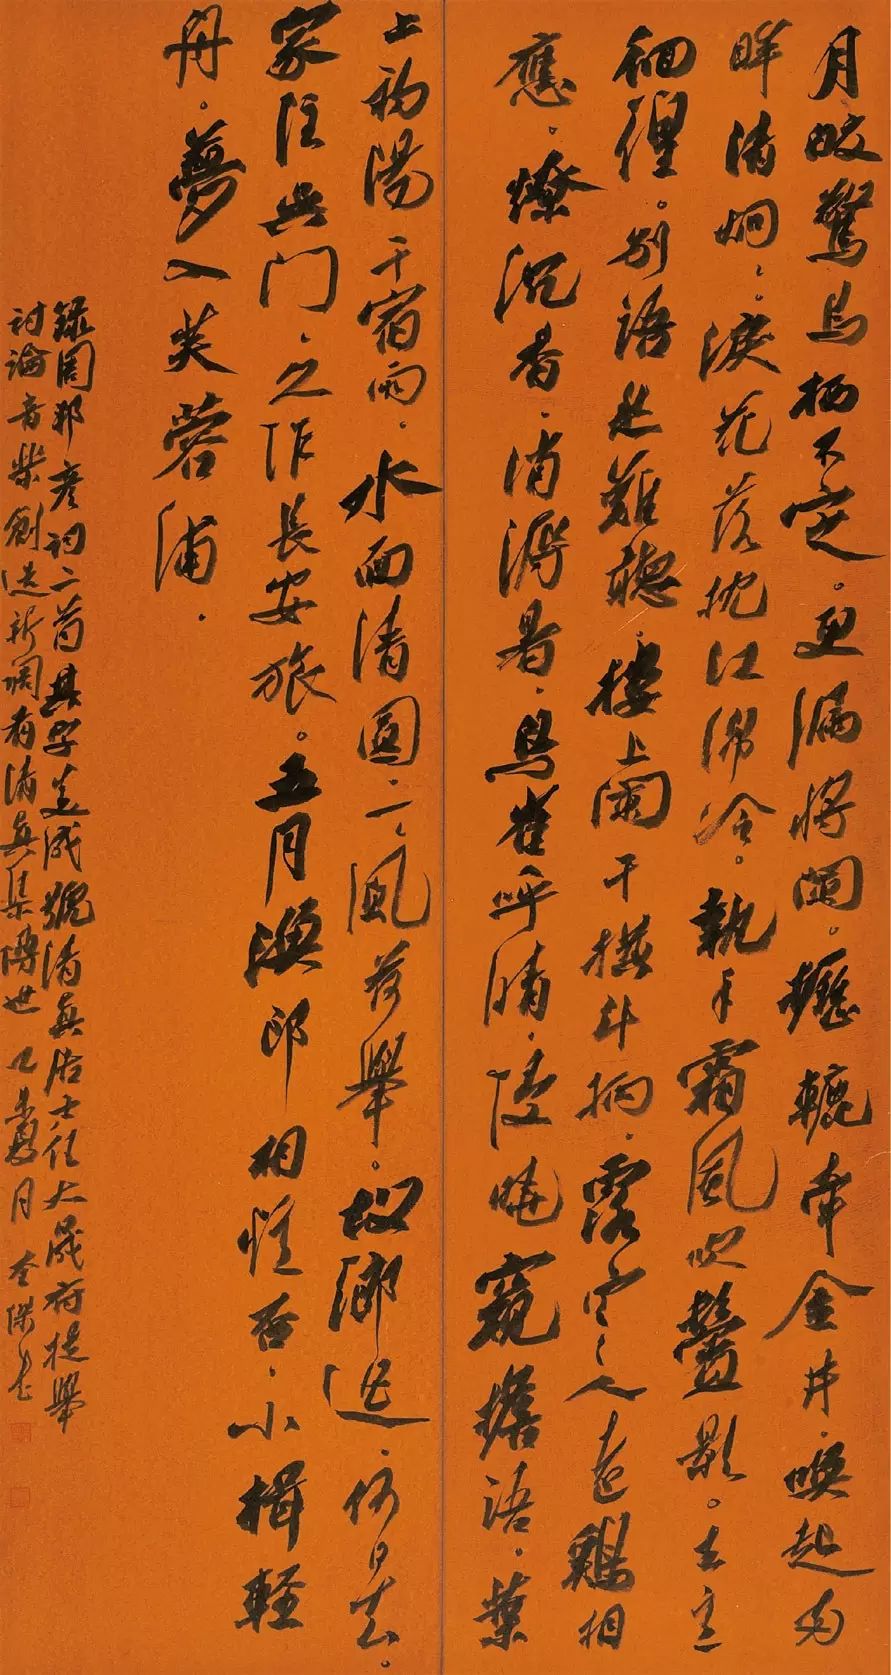 月皎驚烏栖不定。更漏將闌。轣轆牽金井。喚起兩
眸清炯々。淚花落枕紅綿冷。執手霜風吹鬢影。去意
徊徨。別語愁難聽。樓上闌干橫斗柄。露寒人遠鷄相
應。燎沉香。消溽暑。鳥雀呼晴。侵曉窺檐語。葉
上初陽干宿雨。水面清圓。一々風荷舉。故鄉遙。何日去。
家住吳門。久作長安旅。五月漁郎相憶否。小楫輕
舟。夢入芙蓉浦。
錄周邦彥詞二首其字美成號清真居士任大晟府提舉
討論音樂創造新調有清真集傳世 乙未夏月